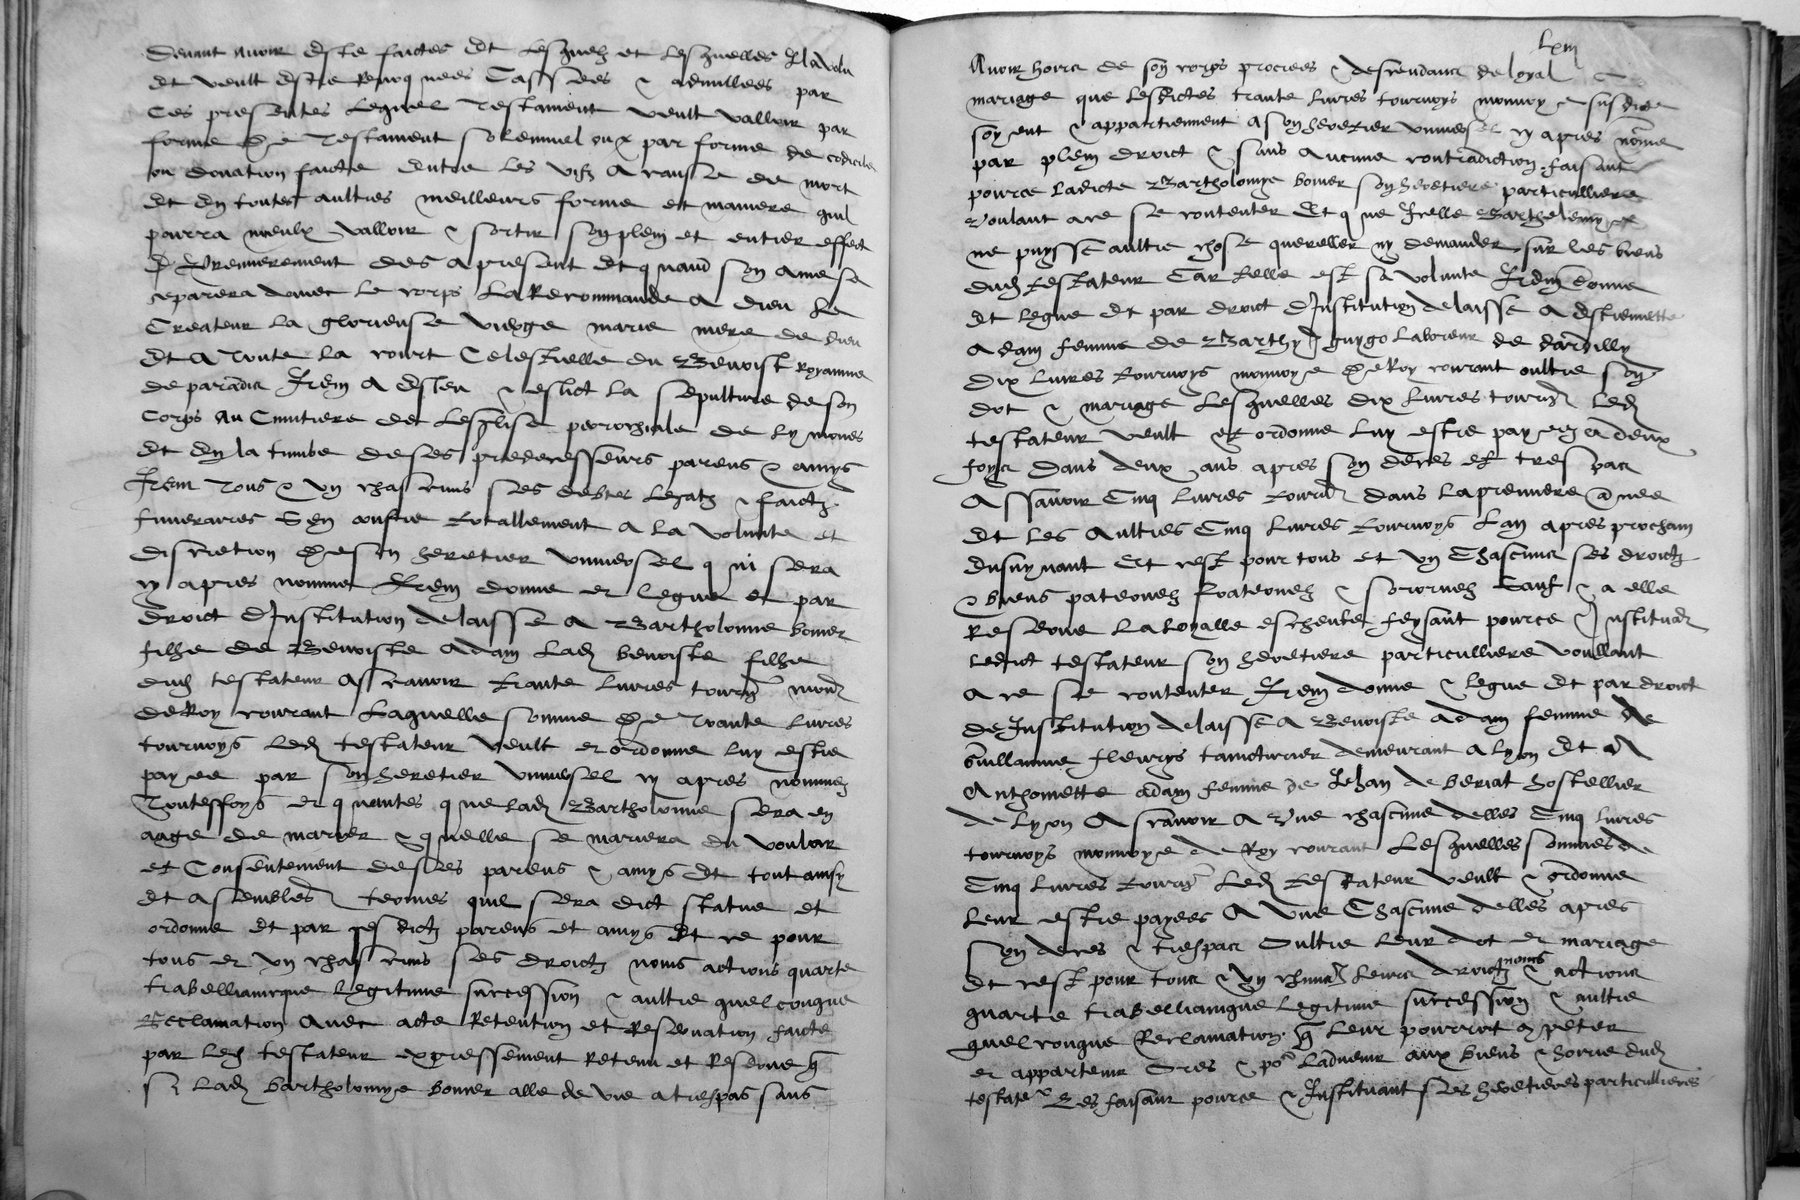 devant avoir este faictes et lesquelz et lesquelles il a volu
et veult estre revocquees cassees & adnullees par
ces presentes lequel testament veult valloir par
forme de testament solennel ou par forme de codicille
ou donation faicte entre les vifz a cause de mort
et en toutes aultres meilleurs forme et maniere quil
pourra mieulx valloir & sortir son plein et entier effect
Et Premierement des a present et quand son ame se
separera davec le corps la Recommande a dieu le
Createur la glorieuse vierge marie mere de dieu
et a toute la court Celestielle du Benoist Royaulme
de paradis Item a esleu & eslict la sepulture de son
Corps au Cimitiere de Lesglise parrochiale de Lymones
et en la tumbe de ses predecesseurs parens & amys
Item tous & un chascuns ses debtes legatz & faictz
funeraires Sen confie totallement a la volunte et
discretion de son heretier universel qui sera
cy apres nomme Item donne et legue et par
droict dInstitution delaisse a Bartholomie bonier
filhe de Benoiste Adam lad benoiste filhe
dud testateur Ascavoir trante livres tourn monn
de Roy courant Laquelle somme de trante livres
tournoys led testateur veult et ordonne luy estre
payee par son heretier universel cy apres nomme
Toutesfoys et quantes que lad Bartholomie sera en
aage de marier & quelle se mariera du vouloir
et Consentement de ses parens & amys et tout ainsy
et a semblables termes quil sera dict statue et
ordonne et par ses dictz parens et amys Et ce pour
tous et un chascuns ses droictz noms actions quarte
trabellianicque legitime succession & aultre quelconque
Reclamation avec acte Retention et Reservation faicte
par led testateur expressement Retenu et Reserve q
si lad bartholomye bonier alle de vie a trespas sans
Lxiii
Avoir hoirs de son corps procrees & descendans de loyal
mariage que lesdictes trante livres tournoys monnoye susdicte
soyent & appartiennent a son heretier universel cy apres nomme
par plein droict & sans aucune contradiction faisant
pource ladicte Bartholomye bonier son heretiere particulliere
Voulant a ce se contenter Et que Icelle Barthelemye
ne puysse aultre chose quereller ny demander sur les biens
dud testateur Car telle est sa volunte Item donne
et legue et par droict dInstitution delaisse a Estiennette
Adam femme de Barthy guygo Laboreur de dardilly
dix livres tournoys monnoye de Roy courant oultre son
dot & mariage Lesquelles dix livres tourn led
testateur veult et ordonne luy estre payees a deux
foys dans deux ans apres son deces et trespas
Assavoir Cinq livres tourn dans la premiere annee
et les aultres Cinq livres tournoys Lan apres prochain
ensuyvant Et cest pour tous et un Chascuns ses droictz
& biens paternelz fraternelz & sororuelz Sauf & a elle
Reserve La loyalle escheute faysant pource & Instituant
ledict testateur son heretiere particulliere voullant
a ce se contenter Item donne & legue et par droict
de Institution delaisse a Benoiste adam femme de
Guillaume fleurys tainturier demeurant a Lyon Et a
Anthoinette adam femme de Jehan de beriat hostellier
de Lyon Ascavoir a Une chascune delles Cinq livres
tournoys monnoye de Roy courant Lesquelles sommes de
Cinq livres tourn Led testateur veult & ordonne
leur estre payees A Une Chascune delles apres
son deces & trespas Oultre leur dot et mariage
Et cest pour tous & un chascun leurs droictz noms & actions
quarte trabellianique legitime succession & aultre
quelconque Reclamation q leur pourroit competer
et appartenir Ores & po ladvenir aux biens & hoirie dud
testate Les faisant pource & Instituant ses heretieres particullieres